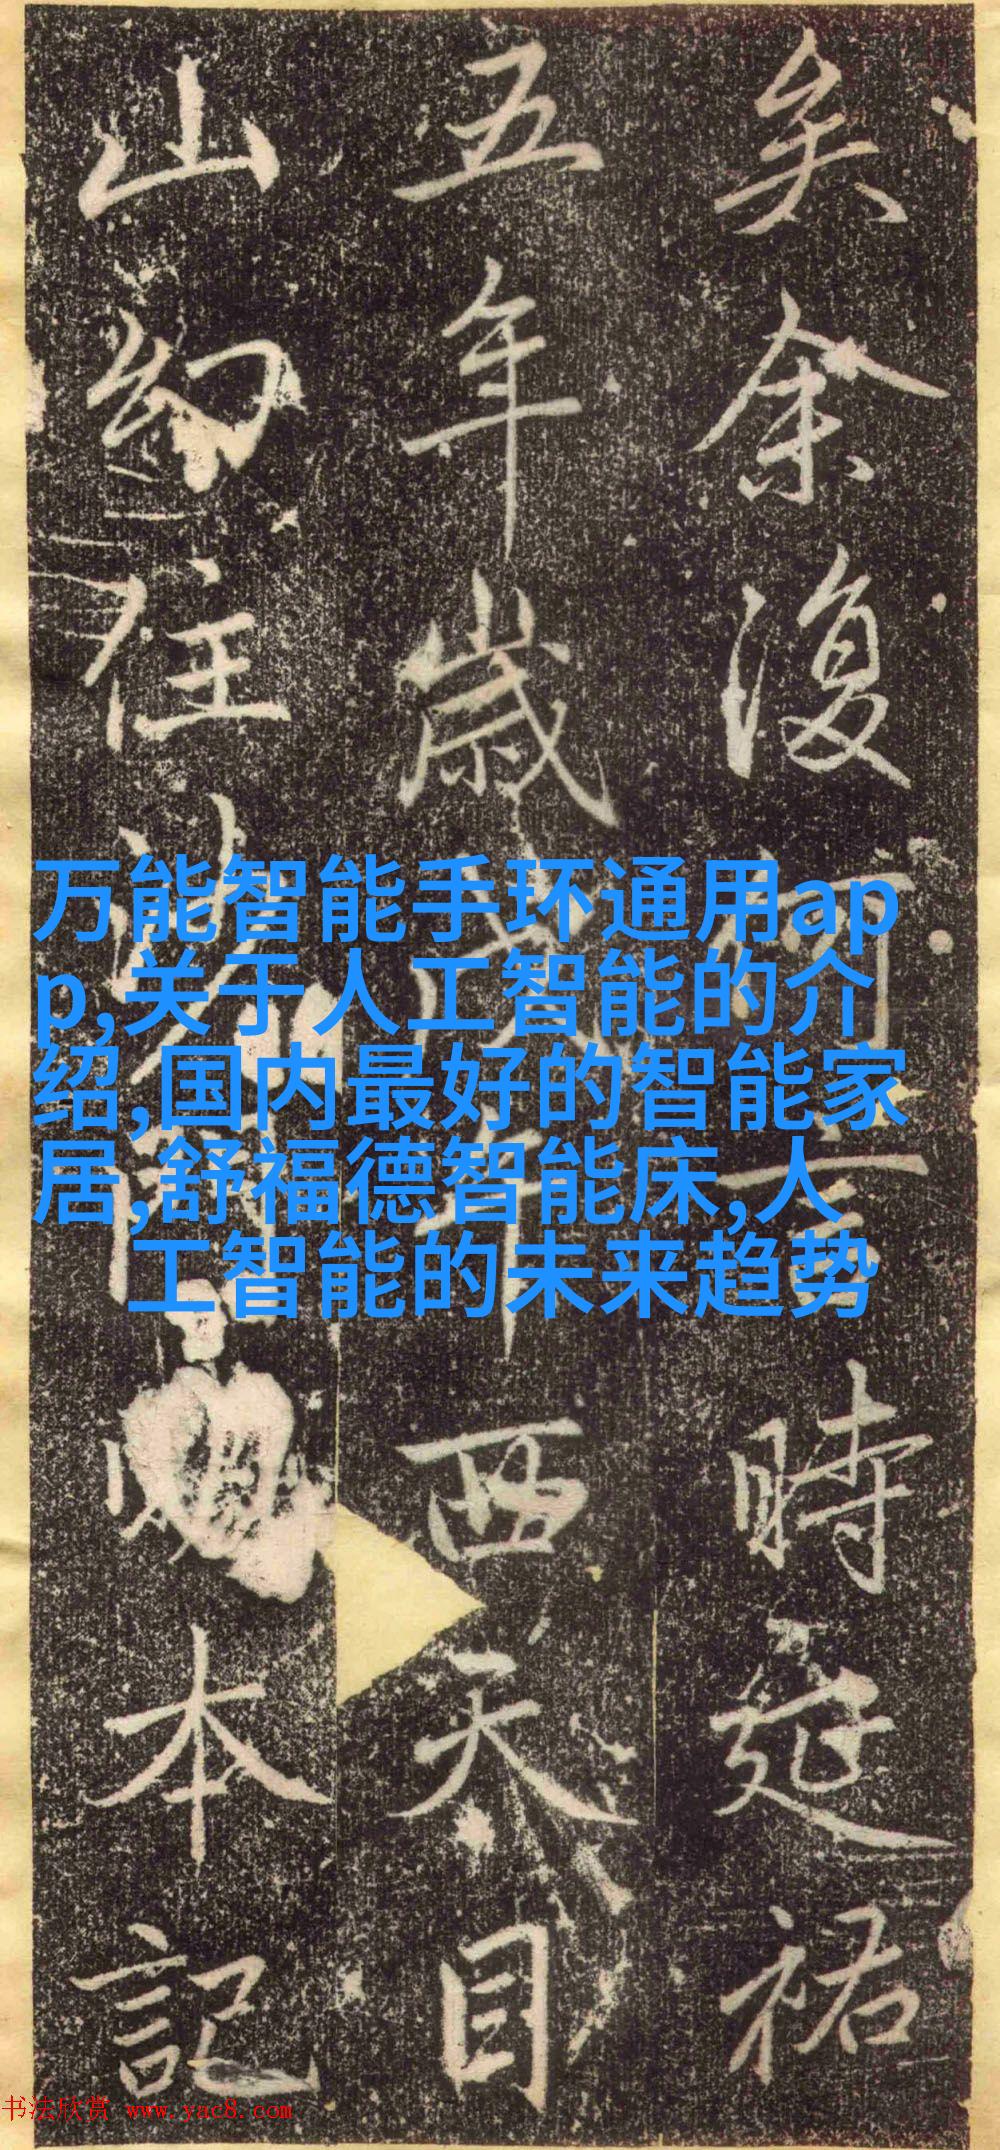 矣余復何言時延祐
五年歲戊午西天目
山幻住沙門本記
万能智能手环通用ap
p,关于人工智能的介
绍,国内最好的智能家
居,舒福德智能床,人
工智能的未来趋势
书法欣赏 www.yac8.com